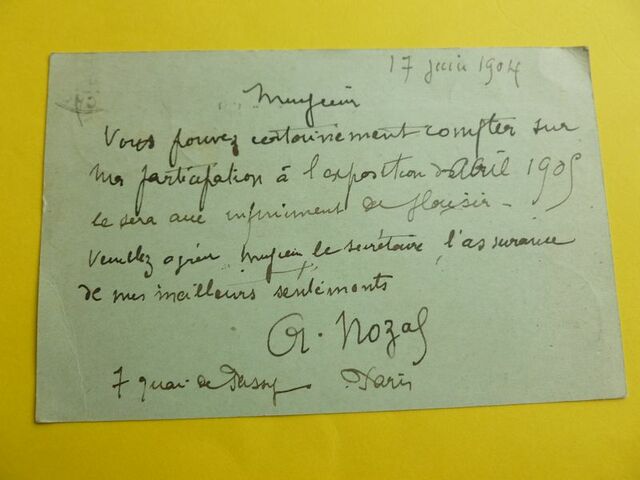 17 juin 1904
Monsieur
Vous pouvez certainement compter sur
ma participation à l'exposition d'Abril 1905
ce sera avec infiniment de plaisir -
Veuillez agréer monsieur le secrétaire, l'assurance
de mes meilleurs sentiments
A. Nozal
7 quai de Passy Paris